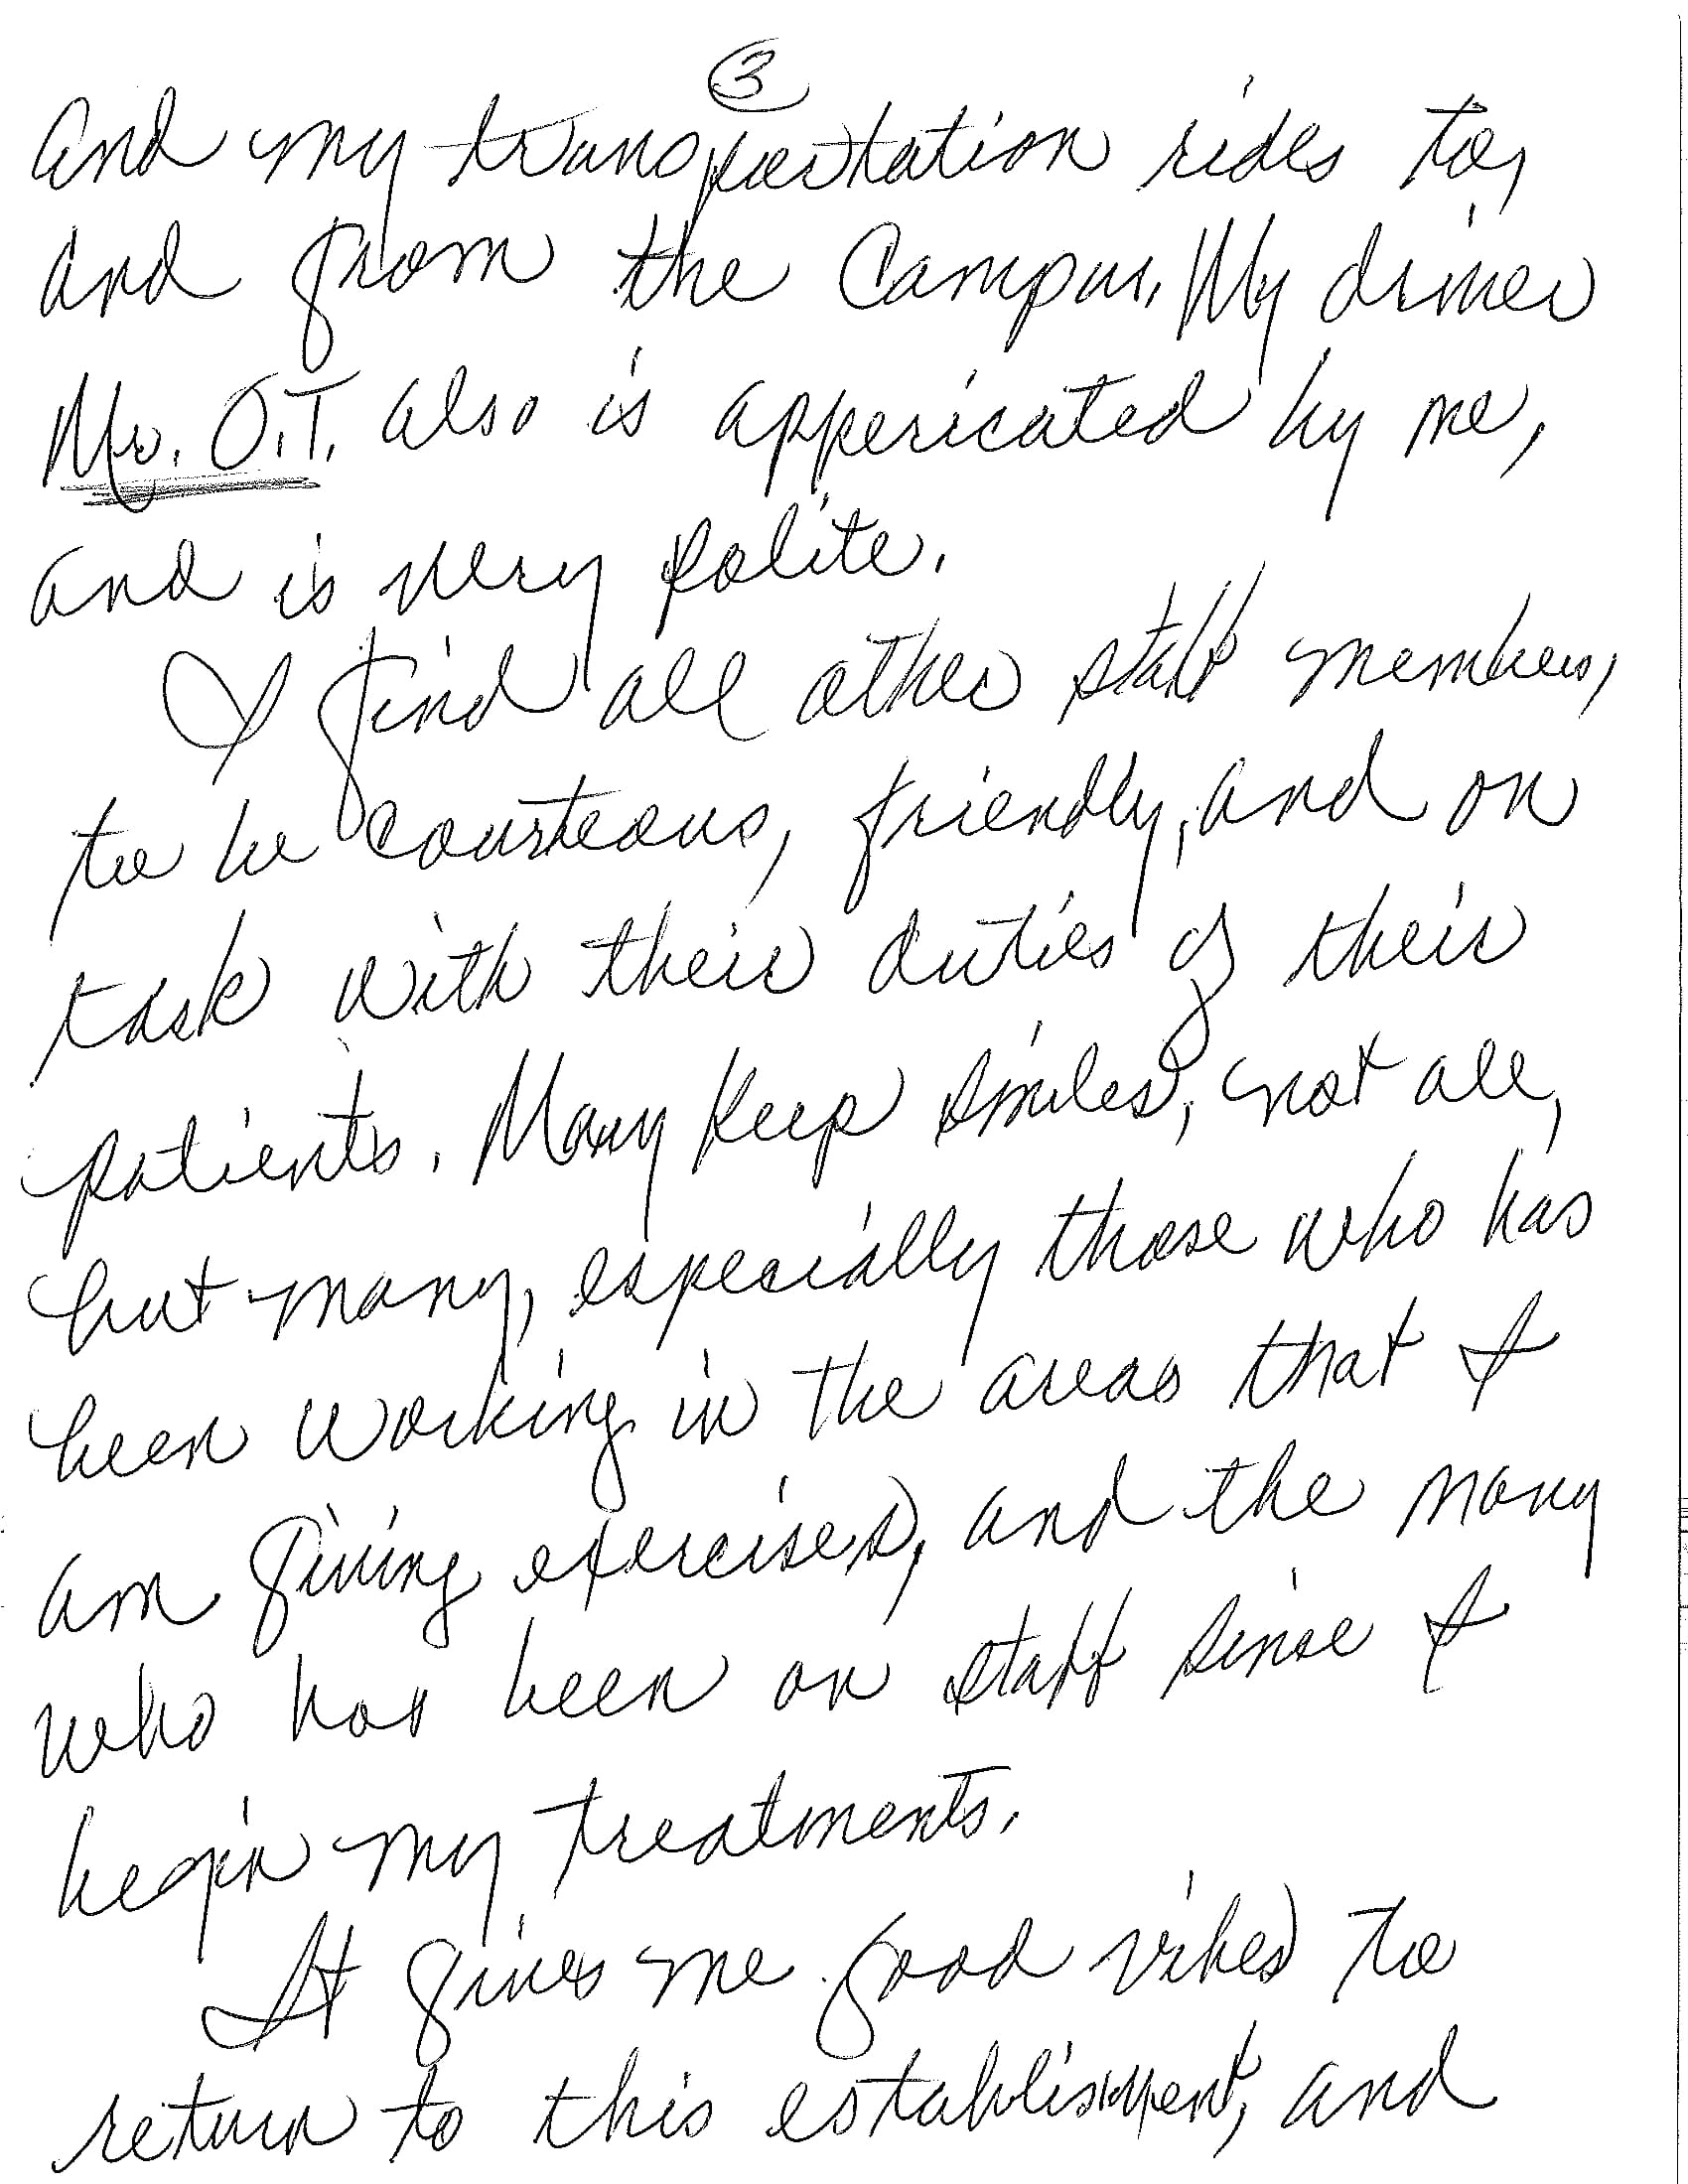 3
and my transportation rides to,
and from the Campus. My driver
Mr. O.T. also is appericated by me,
and is very polite.
I find all other staff members,
to be courteous, friendly, and on
task with their duties of their
patients. Many keep smiles, not all,
but many, especially those who has
been working in the areas that I
am giving exercises, and the many
who has been on staff sinse I
begin my treatments.
It gives me good vibes to
return to this establishment, and